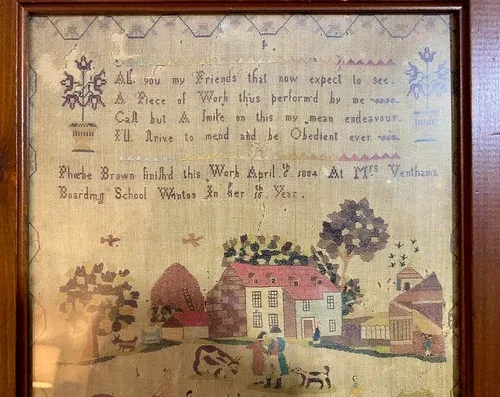 All you my Friends that now expect to see.
A Piece of Work thus perform'd by me
Cast but A Smile on this my mean endeavour.
I'll Strive to mend and be Obedient ever
Phoebe Brown finish'd this Work April 6th 1804 At Mrs Venthams
Boarding School Winton In her 16th Year.